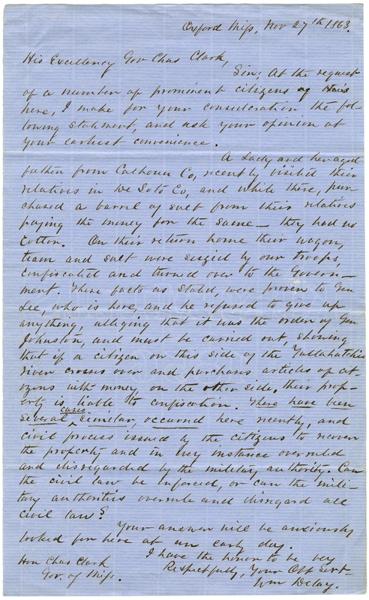 Oxford Miss, Nov 27th 1863.
His Excellency Gov Chas Clark,
Sir; At the request
of a number of prominent citizens of
here, I make for your consideration the fol-
lowing statement, and ask your opinion at
your earliest convenience.
A Lady and her aged
father from Calhoun Co, recently visited their
relatives in De Soto Co, and while there, pur-
chased a barrel of salt from their relatives
paying the money for the same — they had no
Cotton. On their return home their wagon,
team and salt were seized by our troops,
confiscated and turned over to the Govern-
ment. These facts as stated, were proven to Gen
Lee, who is here, and he refused to give up
anything, alleging that it was the order of Gen
Johnston, and must be carried out, showing
that if a citizen on this side of the Tallahatchie
river crosses over and purchases articles of cit
izens with money on the other side, their prop-
erty is liable to confiscation. There have been
several cases similar, occurred here recently, and
civil process issued by the citizens to recover
the property and in every instance overruled
and disregarded by the military authority. Can
the civil law be inforced, or can the mili-
tary authorities overrule and disregard all
civil law?
Your answer will be anxiously
looked for here at an early day.
I have the honor to be very
Respectfully, Your Obt Svt
Wm Delay.
Hon Chas Clark
Gov. of Miss.